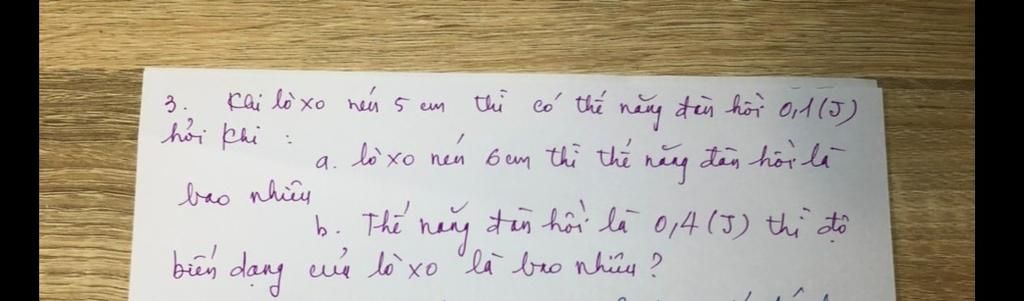 3. Khi lò xo nén 5 cm thì có thế năng đàn hồi 0,1 (J)
hỏi khi :
a. lò xo nén 6 cm thì thế năng đàn hồi là
bao nhiêu
b. Thế năng đàn hồi là 0,4 (J) thì độ
biến dạng của lò xo là bao nhiêu?